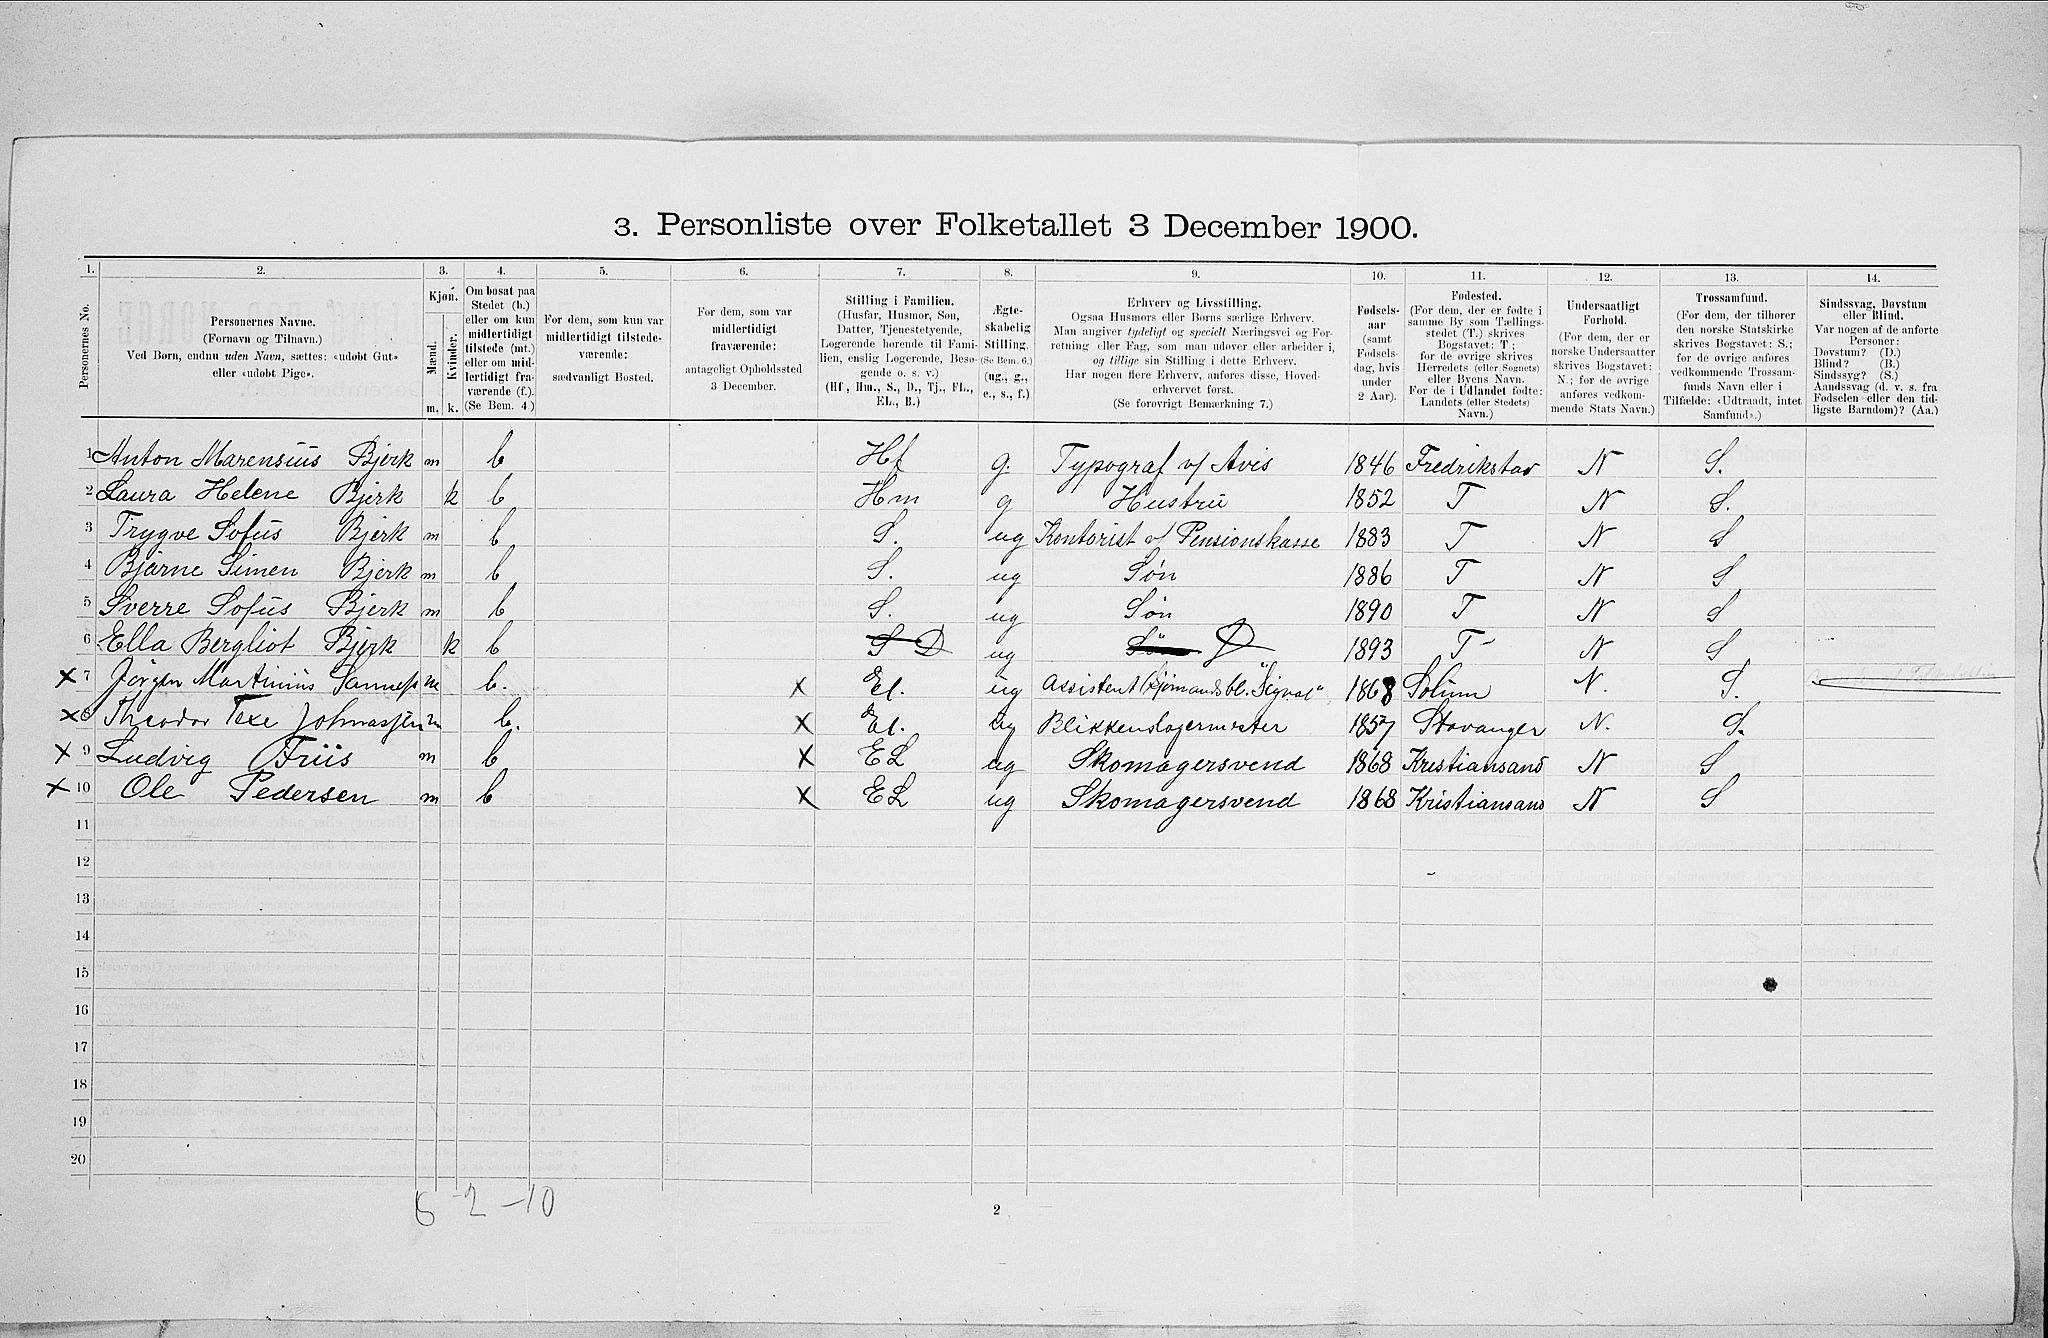 3. Personliste over Folketallet 3 December 1900.
1. 2. 3. 4. 5. 6. 7. 8. 9. 10. 11. 12. 13. 14.
Personernes No.
Personernes Navne.
(Fornavn og Tilnavn.)
Ved Børn, endnu uden Navn, sættes: «udøbt Gut»
eller «udøbt Pige».
Kjøn.
Mænd. Kvinder.
m. k.
Om bosat paa
Stedet (b.)
eller om kun
midlertidigt
tilstede (mt.)
eller om mid-
lertidigt fra-
værende (f.).
(Se Bem. 4.)
For dem, som kun var
midlertidigt tilstede-
værende:
sædvanligt Bosted.
For dem, som var
midlertidigt
fraværende:
antageligt Opholdssted
3 December.
Stilling i Familien.
(Husfar, Husmor, Søn,
Datter, Tjenestetyende,
Logerende hørende til Fami-
lien, enslig Logerende, Besø-
gende o. s. v.)
(Hf, Hm., S., D., Tj., FL.,
EL., B.)
Ægte-
skabelig
Stilling.
(Se Bem. 6.)
(ug., g.,
e., s., f.)
Erhverv og Livsstilling.
Ogsaa Husmors eller Børns særlige Erhverv.
Man angiver tydeligt og specielt Næringsvei og For-
retning eller Fag, som man udøver eller arbeider i,
og tillige sin Stilling i dette Erhverv.
Har nogen flere Erhverv, anføres disse, Hoved-
erhvervet først.
(Se forøvrigt Bemærkning 7.)
Fødsels-
aar
(samt
Fødsels-
dag, hvis
under
2 Aar).
Fødested.
(For dem, der er fødte i
samme By som Tællings-
stedet (T.) skrives
Bogstavet: T;
for de øvrige skrives
Herredets (eller Sognets)
eller Byens Navn.
For de i Udlandet fødte:
Landets (eller Stedets)
Navn.)
Undersaatligt
Forhold.
(For dem, der er
norske Undersaatter
skrives Bogstavet:
N.; for de øvrige
anføres vedkom-
mende Stats Navn.)
Trossamfund.
(For dem, der tilhører
den norske Statskirke
skrives Bogstavet: S.;
for de øvrige anføres
vedkommende Trossam-
funds Navn eller i
Tilfælde: «Udtraadt, intet
Samfund».)
Sindssvag, Døvstum
eller Blind.
Var nogen af de anførte
Personer:
Døvstum? (D.)
Blind? (B.)
Sindssyg? (S.)
Aandssvag (d. v. s. fra
Fødselen eller den tid-
ligste Barndom)? (Aa.)
1 Anton Marensius Bjerk m b Hf g. Typograf v/ Avis 1846 Fredrikstad N S.
2 Laura Helene Bjerk k b Hm g Hustru 1852 T N S.
3 Trygve Sofus Bjerk m b S. ug Kontorist v/ Pensionskasse 1883 T N S
4 Bjarne Simen Bjerk m b S. ug Søn 1886 T N S
5 Sverre Sofus Bjerk m b S. ug Søn 1890 T N S
6 Ella Bergliot Bjerk k b S D ug Søn D 1893 T N S
x 7 Jørgen Martinius m b. x El. ug Assistent Sjømandsbl. "Sigval" 1868 Solum N. S.
x 8 Theodor Texe m b. x El. ug Blikkenslagermester 1857 Stavanger N. S.
x 9 Ludvig Friis m b x EL ug Skomagersvend 1868 Kristiansand N S
x 10 Ole Pedersen m b x EL ug Skomagersvend 1868 Kristiansand N S
11
12
13
14
15
16
17
18
19
20
6 - 2 - 10
2